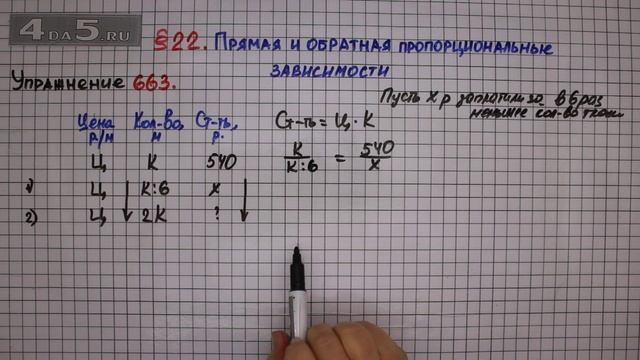 4DA5.RU
§22. Прямая и обратная пропорциональные
зависимости
Упражнение 663.
Пусть х р заплатили за в 6 раз
меньшее кол-во ткани
Цена Кол-во, Ст-ть,
р/м м р.
Ц К 540
1) Ц К:6 х
2) Ц 2К ?
Ст-ть = Ц · К
К/К:6 = 540/х